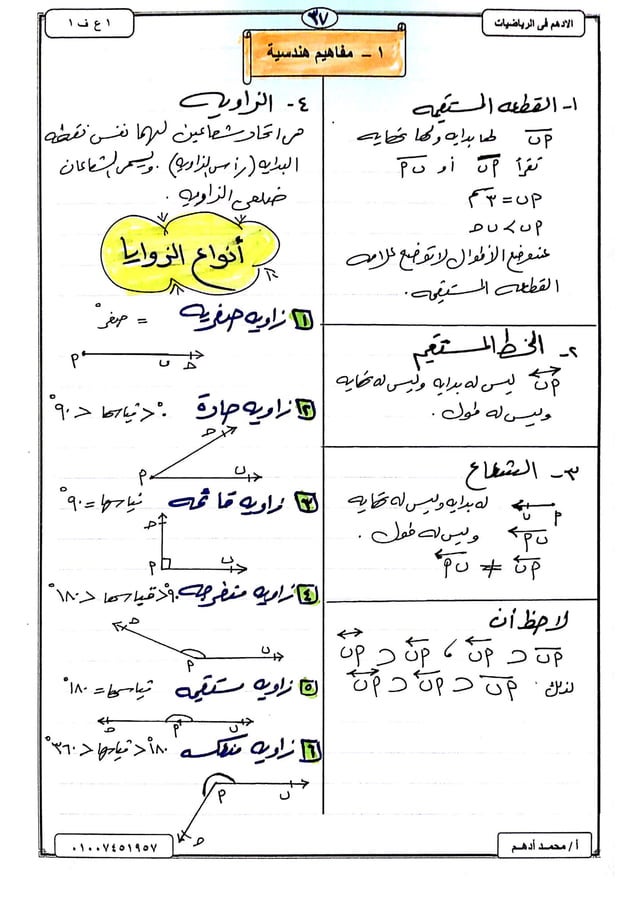 الادهم فى الرياضيات
٣٧
١ ع ف ١
١ - مفاهيم هندسية
١- القطعه المستقيمه
أب لها بدايه ولها نهايه
تقرأ أب أو ب أ
أب = ٣ سم
أب > ب ح
عند وضع الأطوال لا توضع علامه
القطعه المستقيمه .
٢- الخط المستقيم
أب ليس له بدايه وليس له نهايه
وليس له طول .
٣- الشعاع
له بدايه وليس له نهايه
أ ب
ب أ وليس له طول .
أب ≠ ب أ
لاحظ أن
أب ⊃ أب ، أب ⊃ أب
لذلك أب ⊃ أب ⊃ أب
٤- الزاويه
هى اتحاد شعاعين لهما نفس نقطه
البدايه (رأس الزاويه) . ويسمى الشعاعان
ضلعى الزاويه .
أنواع الزوايا
١ زاويه صفريه = صفر°
أ ب ح
٢ زاويه حادة ٠° < قياسها < ٩٠°
ح
أ ب
٣ زاويه قائمه قياسها = ٩٠°
ح
أ ب
٤ زاويه منفرجه ٩٠° < قياسها < ١٨٠°
ح
أ ب
٥ زاويه مستقيمه قياسها = ١٨٠°
ح أ ب
٦ زاويه منعكسه ١٨٠° < قياسها < ٣٦٠°
أ ب
ح
أ / محمد أدهم
٠١٠٠٧٤٥١٩٥٧